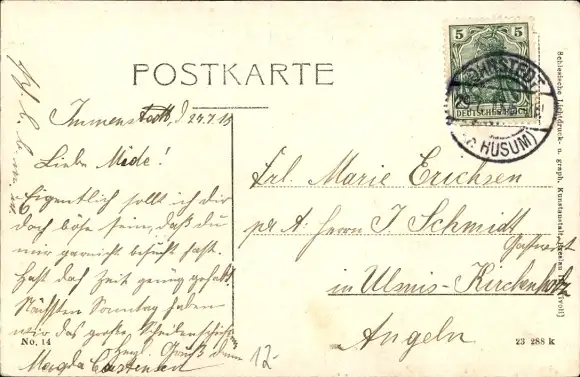 POSTKARTE
Immenstedt, d 24.7.13
Liebe Mide!
Eigentlich sollt ich dir
doch böse sein, daß du
mir garnicht besucht hast.
Hast doch Zeit genug gehabt.
Nächsten Sonntag haben
wir das große Scheibenschießen
Gruß dein
Magda Carstensen
No. 14
5
DEUTSCHES REICH
OHRSTEDT
HUSUM)
Frl. Marie Erichsen
pr A: Herrn J Schmidt
Gastwirt
in Ulsnis-Kirchenholz
Angeln
23 288 k
12.-
Schlesische Lichtdruck- u. graph. Kunstanstalt